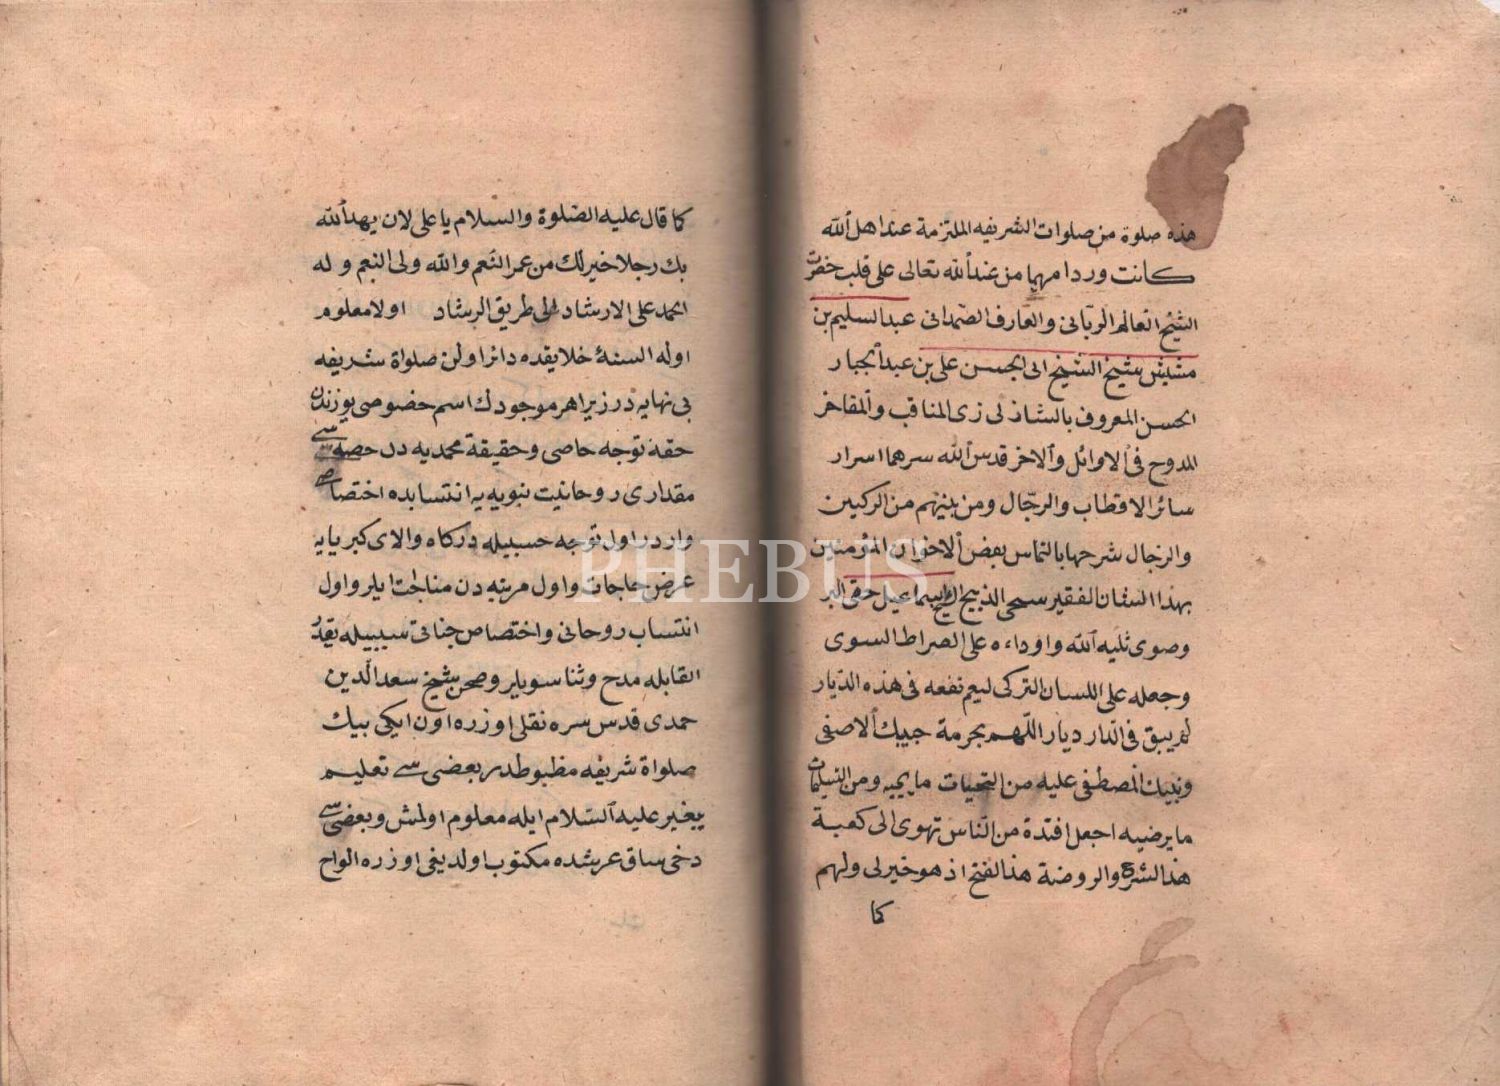 هذه صلوة من صلوات الشريفه الملتزمة عند اهل الله
كانت وردا مهما من عند الله تعالى على قلب حضرت
الشيخ العالم الربانى والعارف الصمدانى عبد السليم بن
مشيش شيخ الشيخ ابى الحسن على بن عبد الجبار
الحسن المعروف بالشاذلى زى المناقب والمفاخر
المدوح فى الاوائل والاخر قدس الله سرهما اسرار
سائر الاقطاب والرجال ومن بينهم من الركبين
والرجال شرحها بالتماس بعض الاخوان المؤمنين
بهذا الشان الفقير سمى الذبيح الشيخ اسماعيل حقى البر
وصوى ثلبه الله واوداءه على الصراط السوى
وجعله على اللسان التركى ليعم نفعه فى هذه الديار
لم يبق فى الدار ديار اللهم بحرمة حبيبك الاصفى
ونبيك المصطفى عليه من التحيات ما يحيه ومن التسليمات
ما يرضيه اجعل افئدة من الناس تهوى الى كعبة
هذا الشرح والروضة هذا الفتح اذ هو خير لى ولهم
كما
كما قال عليه الصلوة والسلام يا على لان يهد الله
بك رجلا خير لك من عمر النعم والله ولى النعم وله
الحمد على الارشاد الى طريق الرشاد اولا معلوم
اوله السنۀ خلايقده دائر اولن صلواة شريفه
بى نهايه در زيرا هر موجودك اسم خصوصى يوزندن
حقه توجه خاصى وحقيقة محمديه دن حصه سى
مقدارى روحانيت نبويه يه انتسابده اختصاصى
واردر اول توجه حسبيله دركاه والاى كبريايه
عرض حاجات واول مرتبه دن مناجات ايلر واول
انتساب روحانى واختصاص جنانى سببيله بقدر
القابله مدح وثنا سويلر وصحن شيخ سعد الدين
حمدى قدس سره نقلى اوزره اون ايكى بيك
صلواة شريفه مظبوطدر بعضى سى تعليم
پيغمبر عليه السلام ايله معلوم اولمش وبعضى سى
دخى ساق عرشده مكتوب اولديغى اوزره الواح
PHEBUS